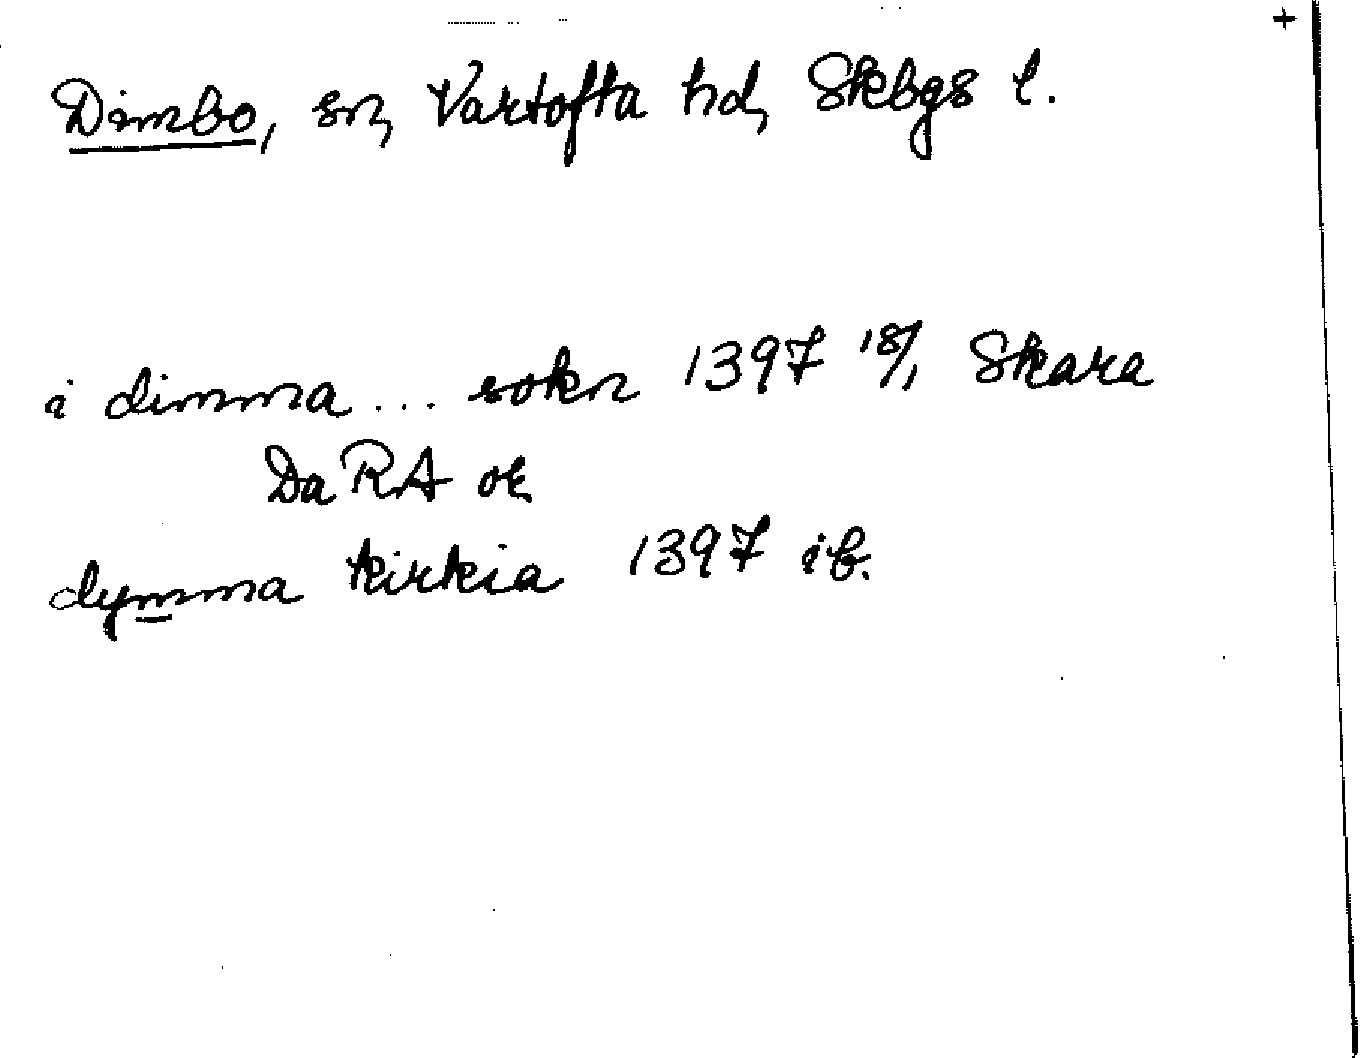 +
Dimbo, sn, Vartofta hd, Skbgs l.
i dimma... sokn 1397 18/1 Skara
DaRA or,
dymma kirkia 1397 ib.